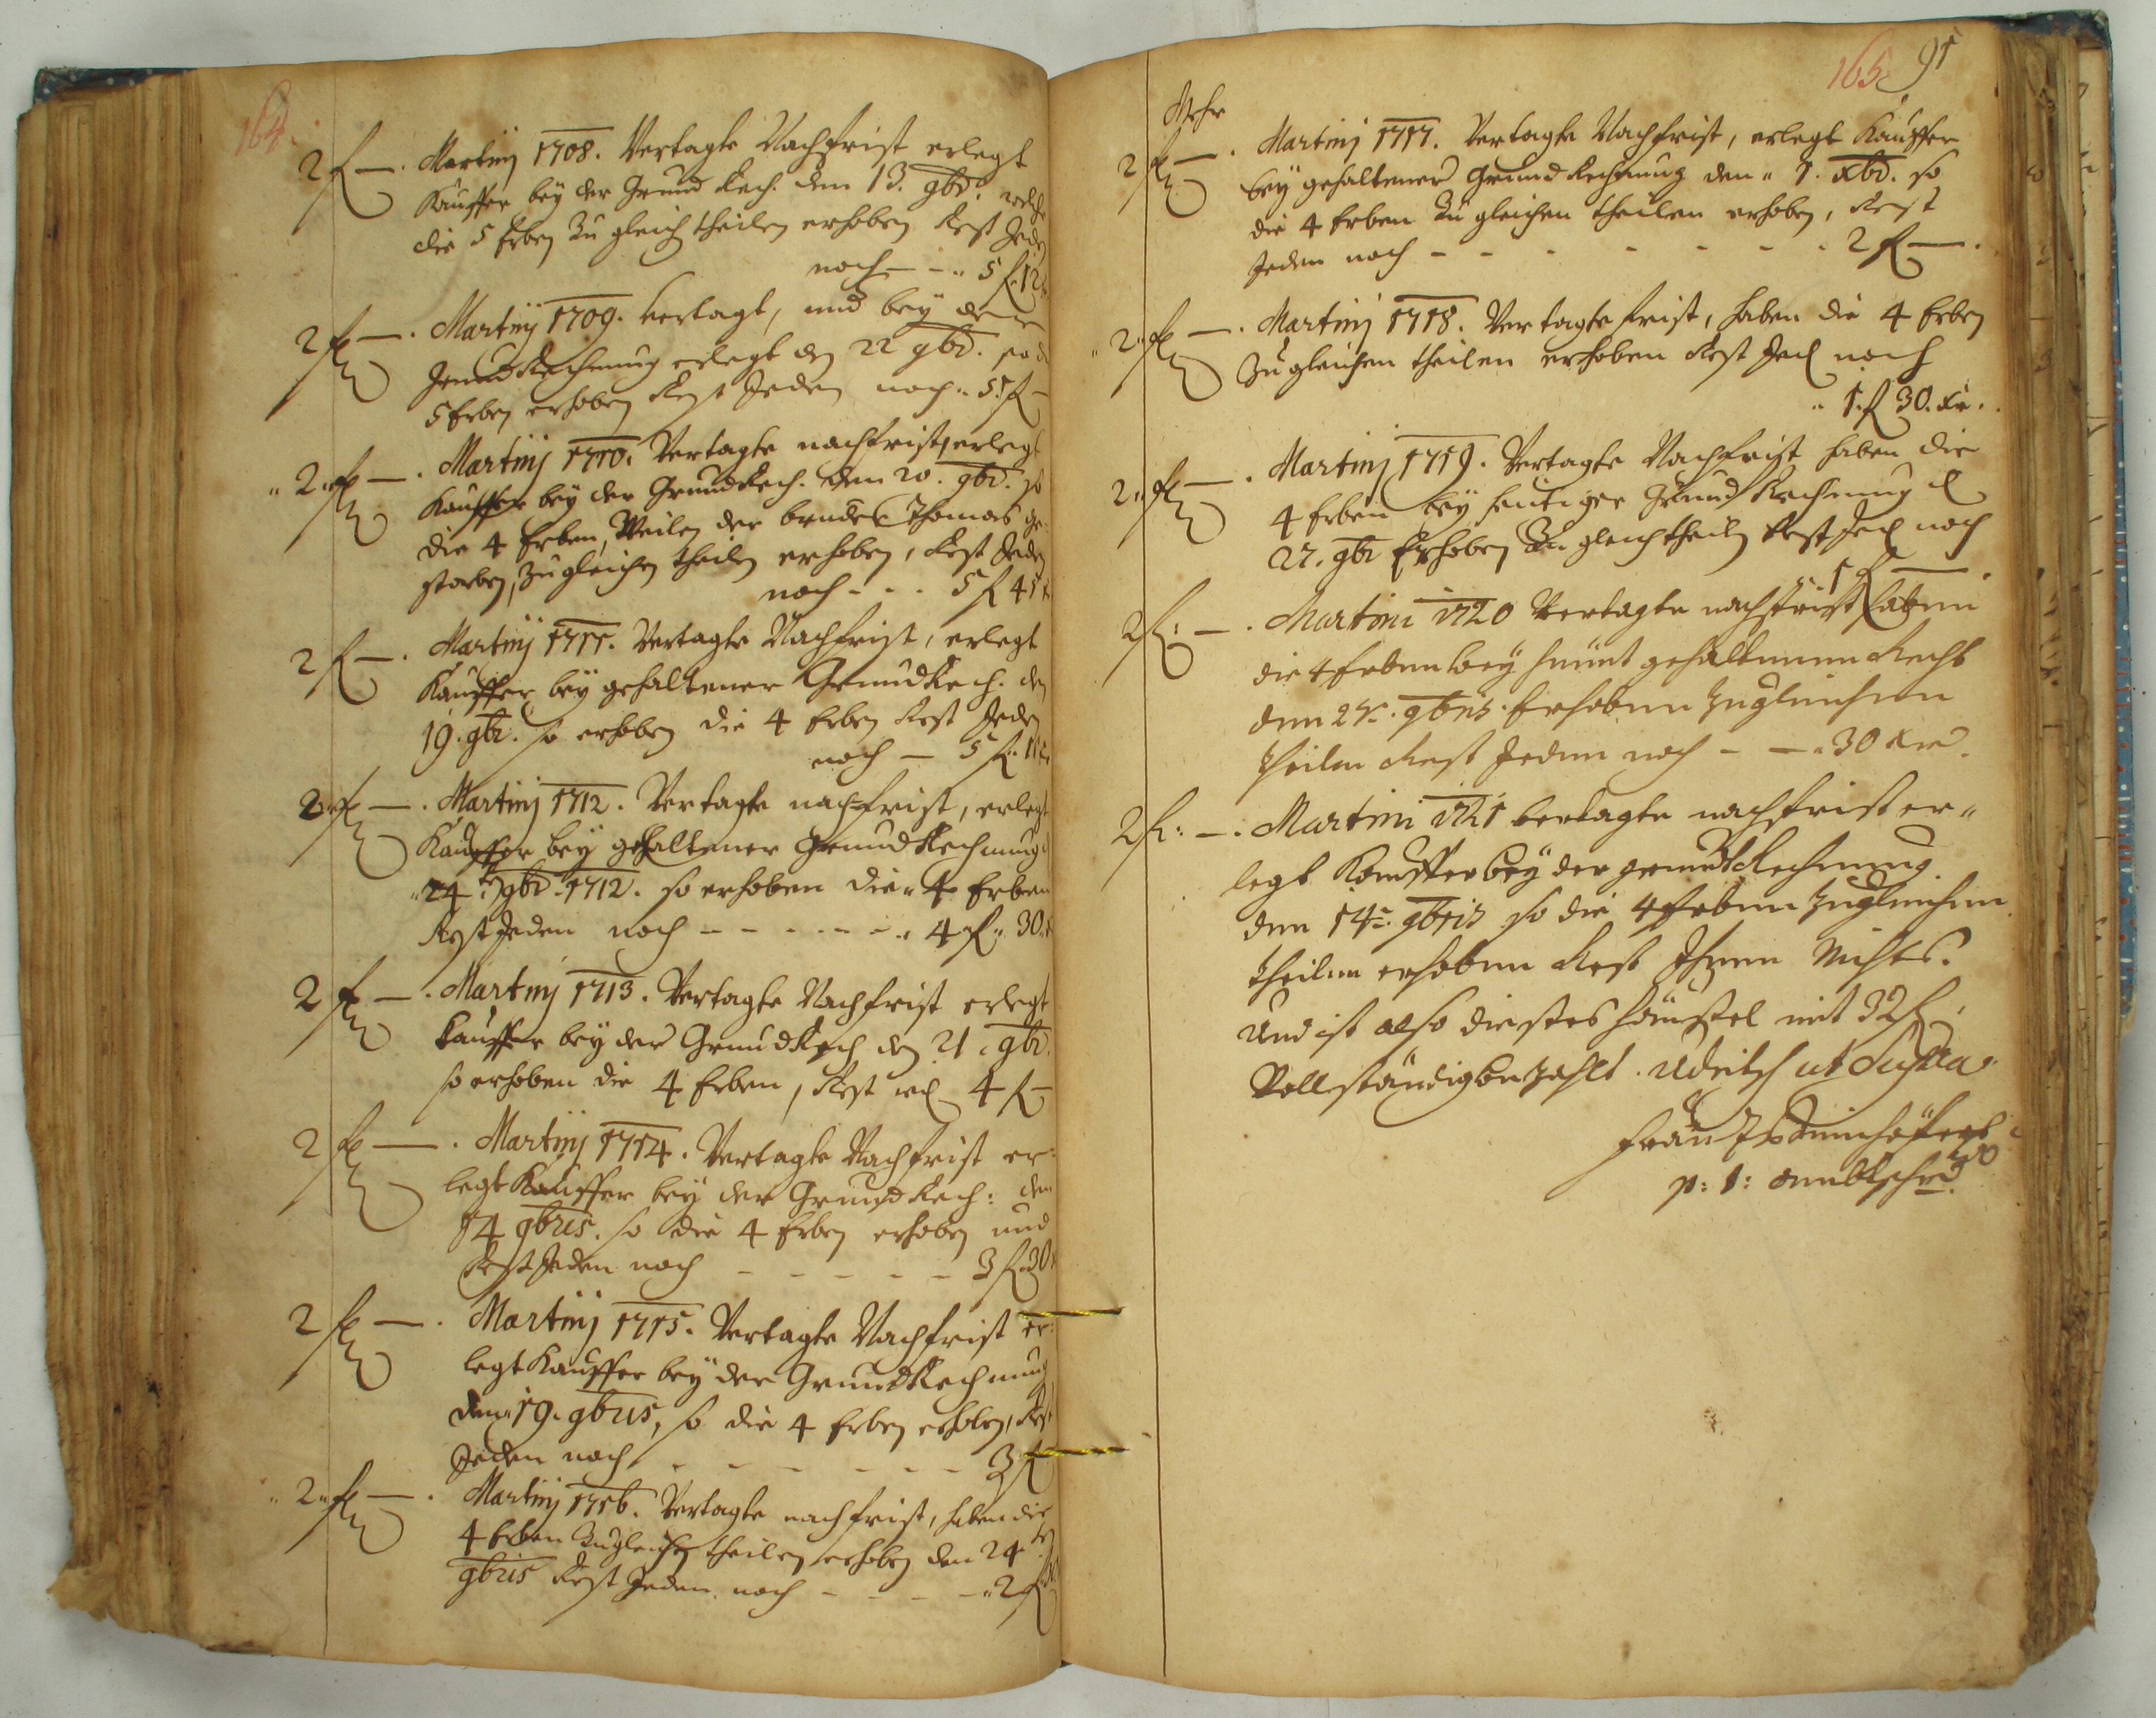 164.
2 fl — . Martinj 1708. Vertagte Nachfrist erlegt
Kauffer bey der Grund Rech. den 13. 9br. welche
die 5 Erben zu gleich theilen erhoben Rest Jeden
noch — — „ 5 fl 12
2 fl — . Martinj 1709. Vertagt, und bey der
Grund Rechnung erlegt den 22 9br. so d
5 Erben erhoben Rest Jeden noch „ 5 fl —
„ 2 „ fl — . Martinj 1710. Vertagte nachfrist erlegt
Kauffer bey der Grund Rech. den 20. 9br. so
die 4 Erben, Weilen der bruder Thomas ge-
storben, zu gleichen theilen erhoben, Rest Jeden
noch - - - 5 fl 45
2 fl — . Martinj 1711. Vertagte Nachfrist, erlegt
Kauffer bey gehaltener Grund Rech. den
19. 9br. so erhoben die 4 Erben Rest Jeden
noch — 5 fl.
2 „ fl — . Martinj 1712. Vertagte nachfrist, erlegt
Kauffer bey gehaltener Grund Rechnung
„ 24 ten 9br. 1712. so erhoben die „ 4 Erben
Rest Jeden noch - - - - - - „ 4 fl „ 30
2 fl — . Martinj 1713. Vertagte Nachfrist erlegt
Kauffer bey der Grund Rech den 21. 9br.
so erhoben die 4 Erben, Rest jed 4 fl —
2 fl — . Martinj 1714. Vertagte Nachfrist er:
legt Kauffer bey der Grund Rech: den
14 9bris. so die 4 Erben erhoben und
Rest Jeden noch - - - - - 3 fl 30
2 fl — . Martinj 1715. Vertagte Nachfrist er:
legt Kauffer bey der Grund Rechnung
den 19. 9bris, so die 4 Erben erhoben, Rest
Jeden noch - - - - - - 3 fl
„ 2 „ fl — . Martinj 1716. Vertagte nachfrist, haben die
4 Erben zu gleichen theilen erhoben den 24 ten
9bris Rest Jeden noch - - - - „ 2 fl
165. 91
Mehr
2 fl — . Martinj 1717. Vertagte Nachfrist, erlegt Kauffer
bey gehaltener Grund Rechnung den „ 1. Xbr. so
die 4 Erben zu gleichen theilen erhoben, Rest
Jeden noch - - - - - - - 2 fl — .
„ 2 „ fl — . Martinj 1718. Vertagte frist, haben die 4 Erben
Zu gleichen theilen erhoben Rest Jed noch
„ 1. fl 30. Xr.
2 „ fl — . Martinj 1719. Vertagte Nachfrist haben die
4 Erben bey heutiger Grund Rechnung d
27. 9br Erhoben zu gleich theiln Rest Jed noch
1 fl — .
2 fl: — . Martini 1720 Vertagte nachfrist haben
die 4 Erben bey heünt gehaltenen Recht
den 27n. 9bris. Erhoben zugleichen
theilen Rest Jeden noch - — „ 30 Xr.
2 fl: — . Martini 1721 Vertagte nachfrist er„
legt Kauffer bey der grundt Rechnung.
den 14n. 9bris so die 4 Erben zugleichen
theilen erhoben Rest Ihnen Nichts.
Und ist also diestes häustel mit 32 fl.
Vollständig bezahlt. ut Supra
p: t: ambtschrd.